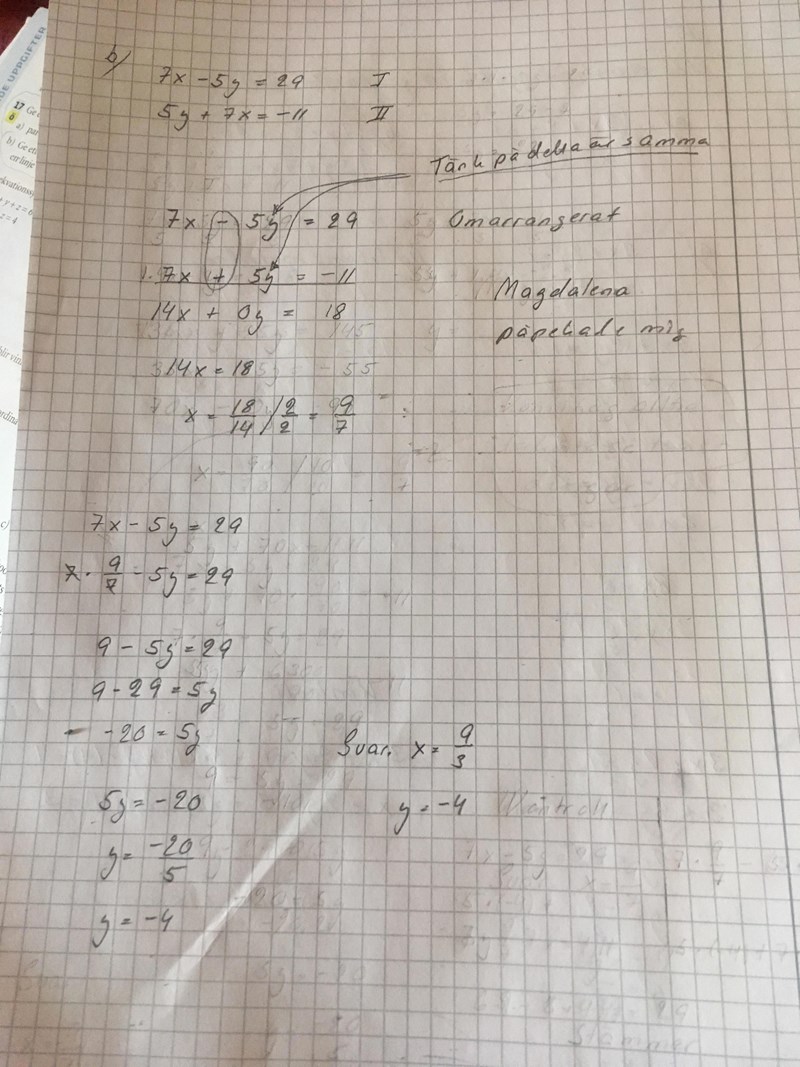 b)
7x - 5y = 29 I
5y + 7x = -11 II
Tänk på detta är samma
7x - 5y = 29 Omarrangerat
7x + 5y = -11
14x + 0y = 18
Magdalena
påpekade mig
14x = 18
x = 18/14 / 2/2 = 9/7
7x - 5y = 29
7 · 9/7 - 5y = 29
9 - 5y = 29
9 - 29 = 5y
-20 = 5y
Svar. x = 9/3
5y = -20
y = -4
y = -20/5
y = -4
UPPGIFTER
17
a)
b) Ge